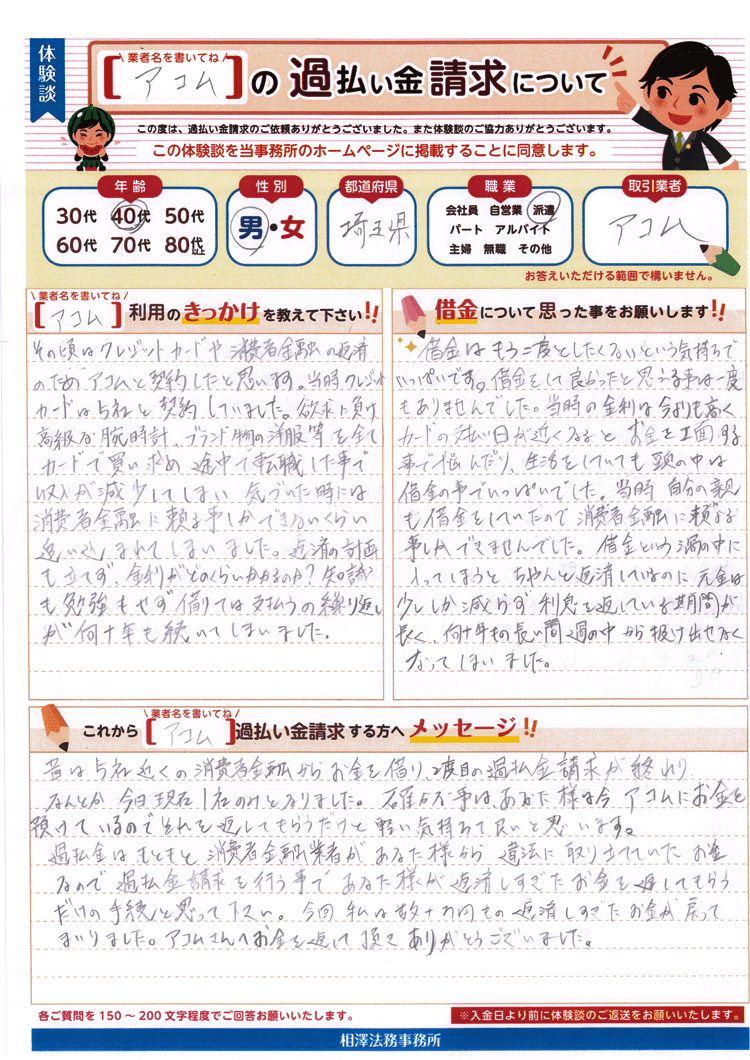 体験談
業者名を書いてね
[アコム]の過払い金請求について
この度は、過払い金請求のご依頼ありがとうございました。また体験談のご協力ありがとうございます。
この体験談を当事務所のホームページに掲載することに同意します。
年齢 性別 都道府県 職業 取引業者
30代 40代 50代
60代 70代 80代以上
男・女
埼玉県
会社員 自営業 派遣
パート アルバイト
主婦 無職 その他
アコム
お答えいただける範囲で構いません。
業者名を書いてね
[アコム]利用のきっかけを教えて下さい!!
その頃はクレジットカードや消費者金融の返済
のため、アコムと契約したと思います。当時クレジット
カードは5社と契約していました。欲求に負け
高級な腕時計、ブランド物の洋服等を全て
カードで買い求め途中で転職した事で
収入が減少してしまい気づいた時には
消費者金融に頼る事しかできないくらい
追い込まれてしまいました。返済の計画
も立てず、金利がどのくらいかかるのか?知識
も勉強もせず借りては支払うの繰り返し
が何十年も続いてしまいました。
借金について思った事をお願いします!!
借金はもう二度としたくないという気持ちで
いっぱいです。借金をして良かったと思える事は一度
もありませんでした。当時の金利は今よりも高く
カードの支払い日が近くなるとお金を工面する
事で悩んだり、生活をしていても頭の中は
借金の事でいっぱいでした。当時自分の親
も借金をしていたので消費者金融に頼る
事しかできませんでした。借金という渦の中に
入ってしまうとちゃんと返済しているのに元金は
少ししか減らず利息を返している期間が
長く、何十年もの長い間渦の中から抜け出せなく
なってしまいました。
業者名を書いてね
これから[アコム]過払い金請求する方へメッセージ!!
昔は5社近くの消費者金融からお金を借り、2度目の過払金請求が終わり
なんとか今日現在1社のみとなりました。確かな事は、あなた様は今アコムにお金を
預けているのでそれを返してもらうだけと軽い気持ちで良いと思います。
過払金はもともと消費者金融業者があなた様から違法に取り立てていたお金
なので過払金請求を行う事であなた様が返済しすぎたお金を返してもらう
だけの手続と思って下さい。今回私は数十万円もの返済しすぎたお金が戻って
まいりました。アコムさんへお金を返して頂きありがとうございました。
各ご質問を150～200文字程度でご回答お願いいたします。
※入金日より前に体験談のご返送をお願いいたします。
相澤法務事務所